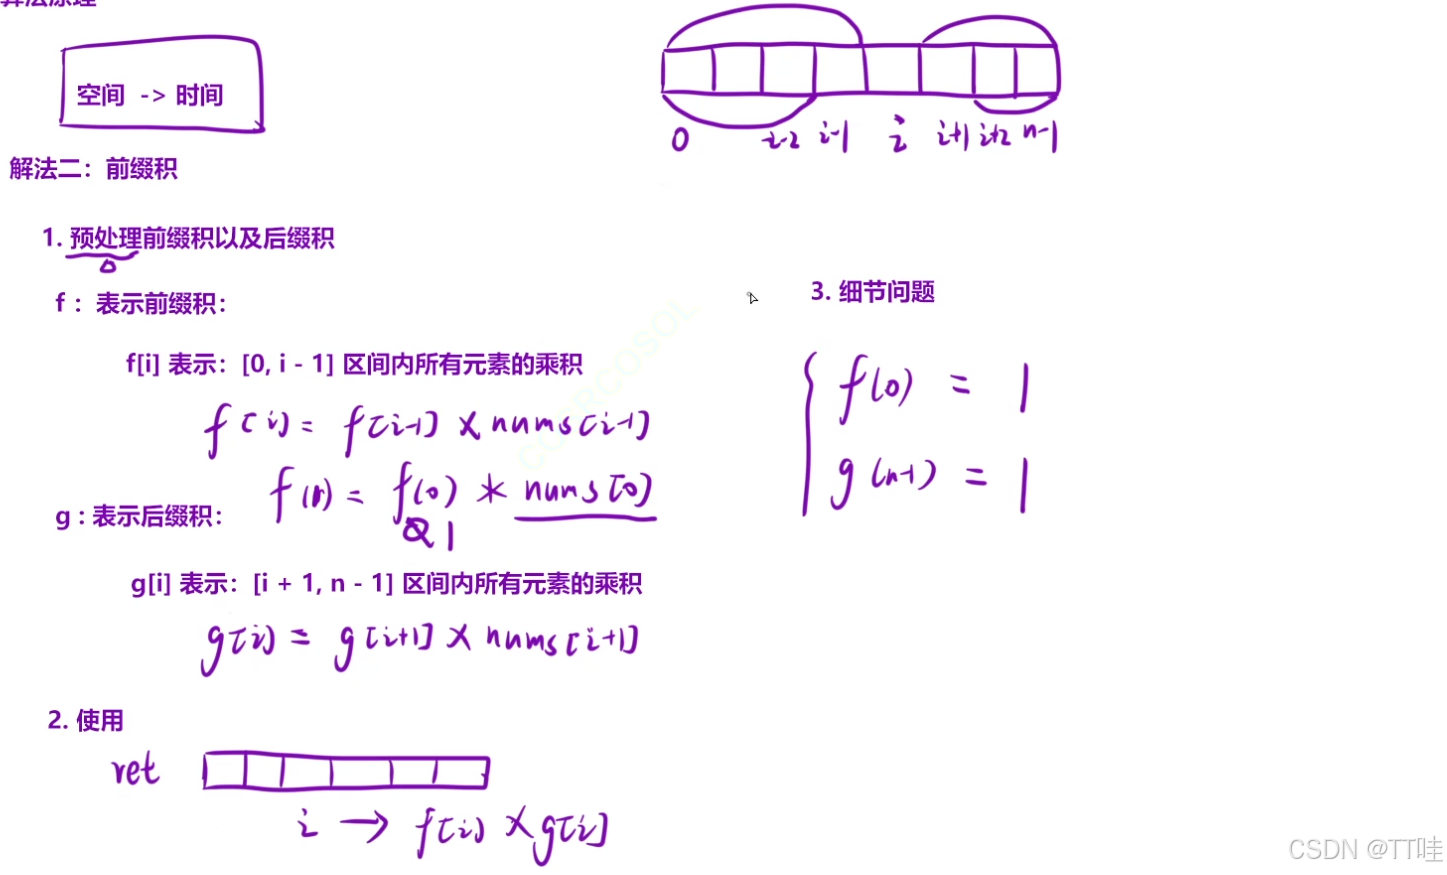 算法原理
空间 -> 时间
0 i-2 i-1 i i+1 i+2 n-1
解法二：前缀积
1. 预处理前缀积以及后缀积
f： 表示前缀积：
f[i] 表示：[0, i - 1] 区间内所有元素的乘积
f[i] = f[i-1] × nums[i-1]
f(1) = f(0) * nums[0]
1
g : 表示后缀积：
g[i] 表示：[i + 1, n - 1] 区间内所有元素的乘积
g[i] = g[i+1] × nums[i+1]
2. 使用
ret
i → f[i] × g[i]
3. 细节问题
f(0) = 1
g(n-1) = 1
CSDN @TT哇